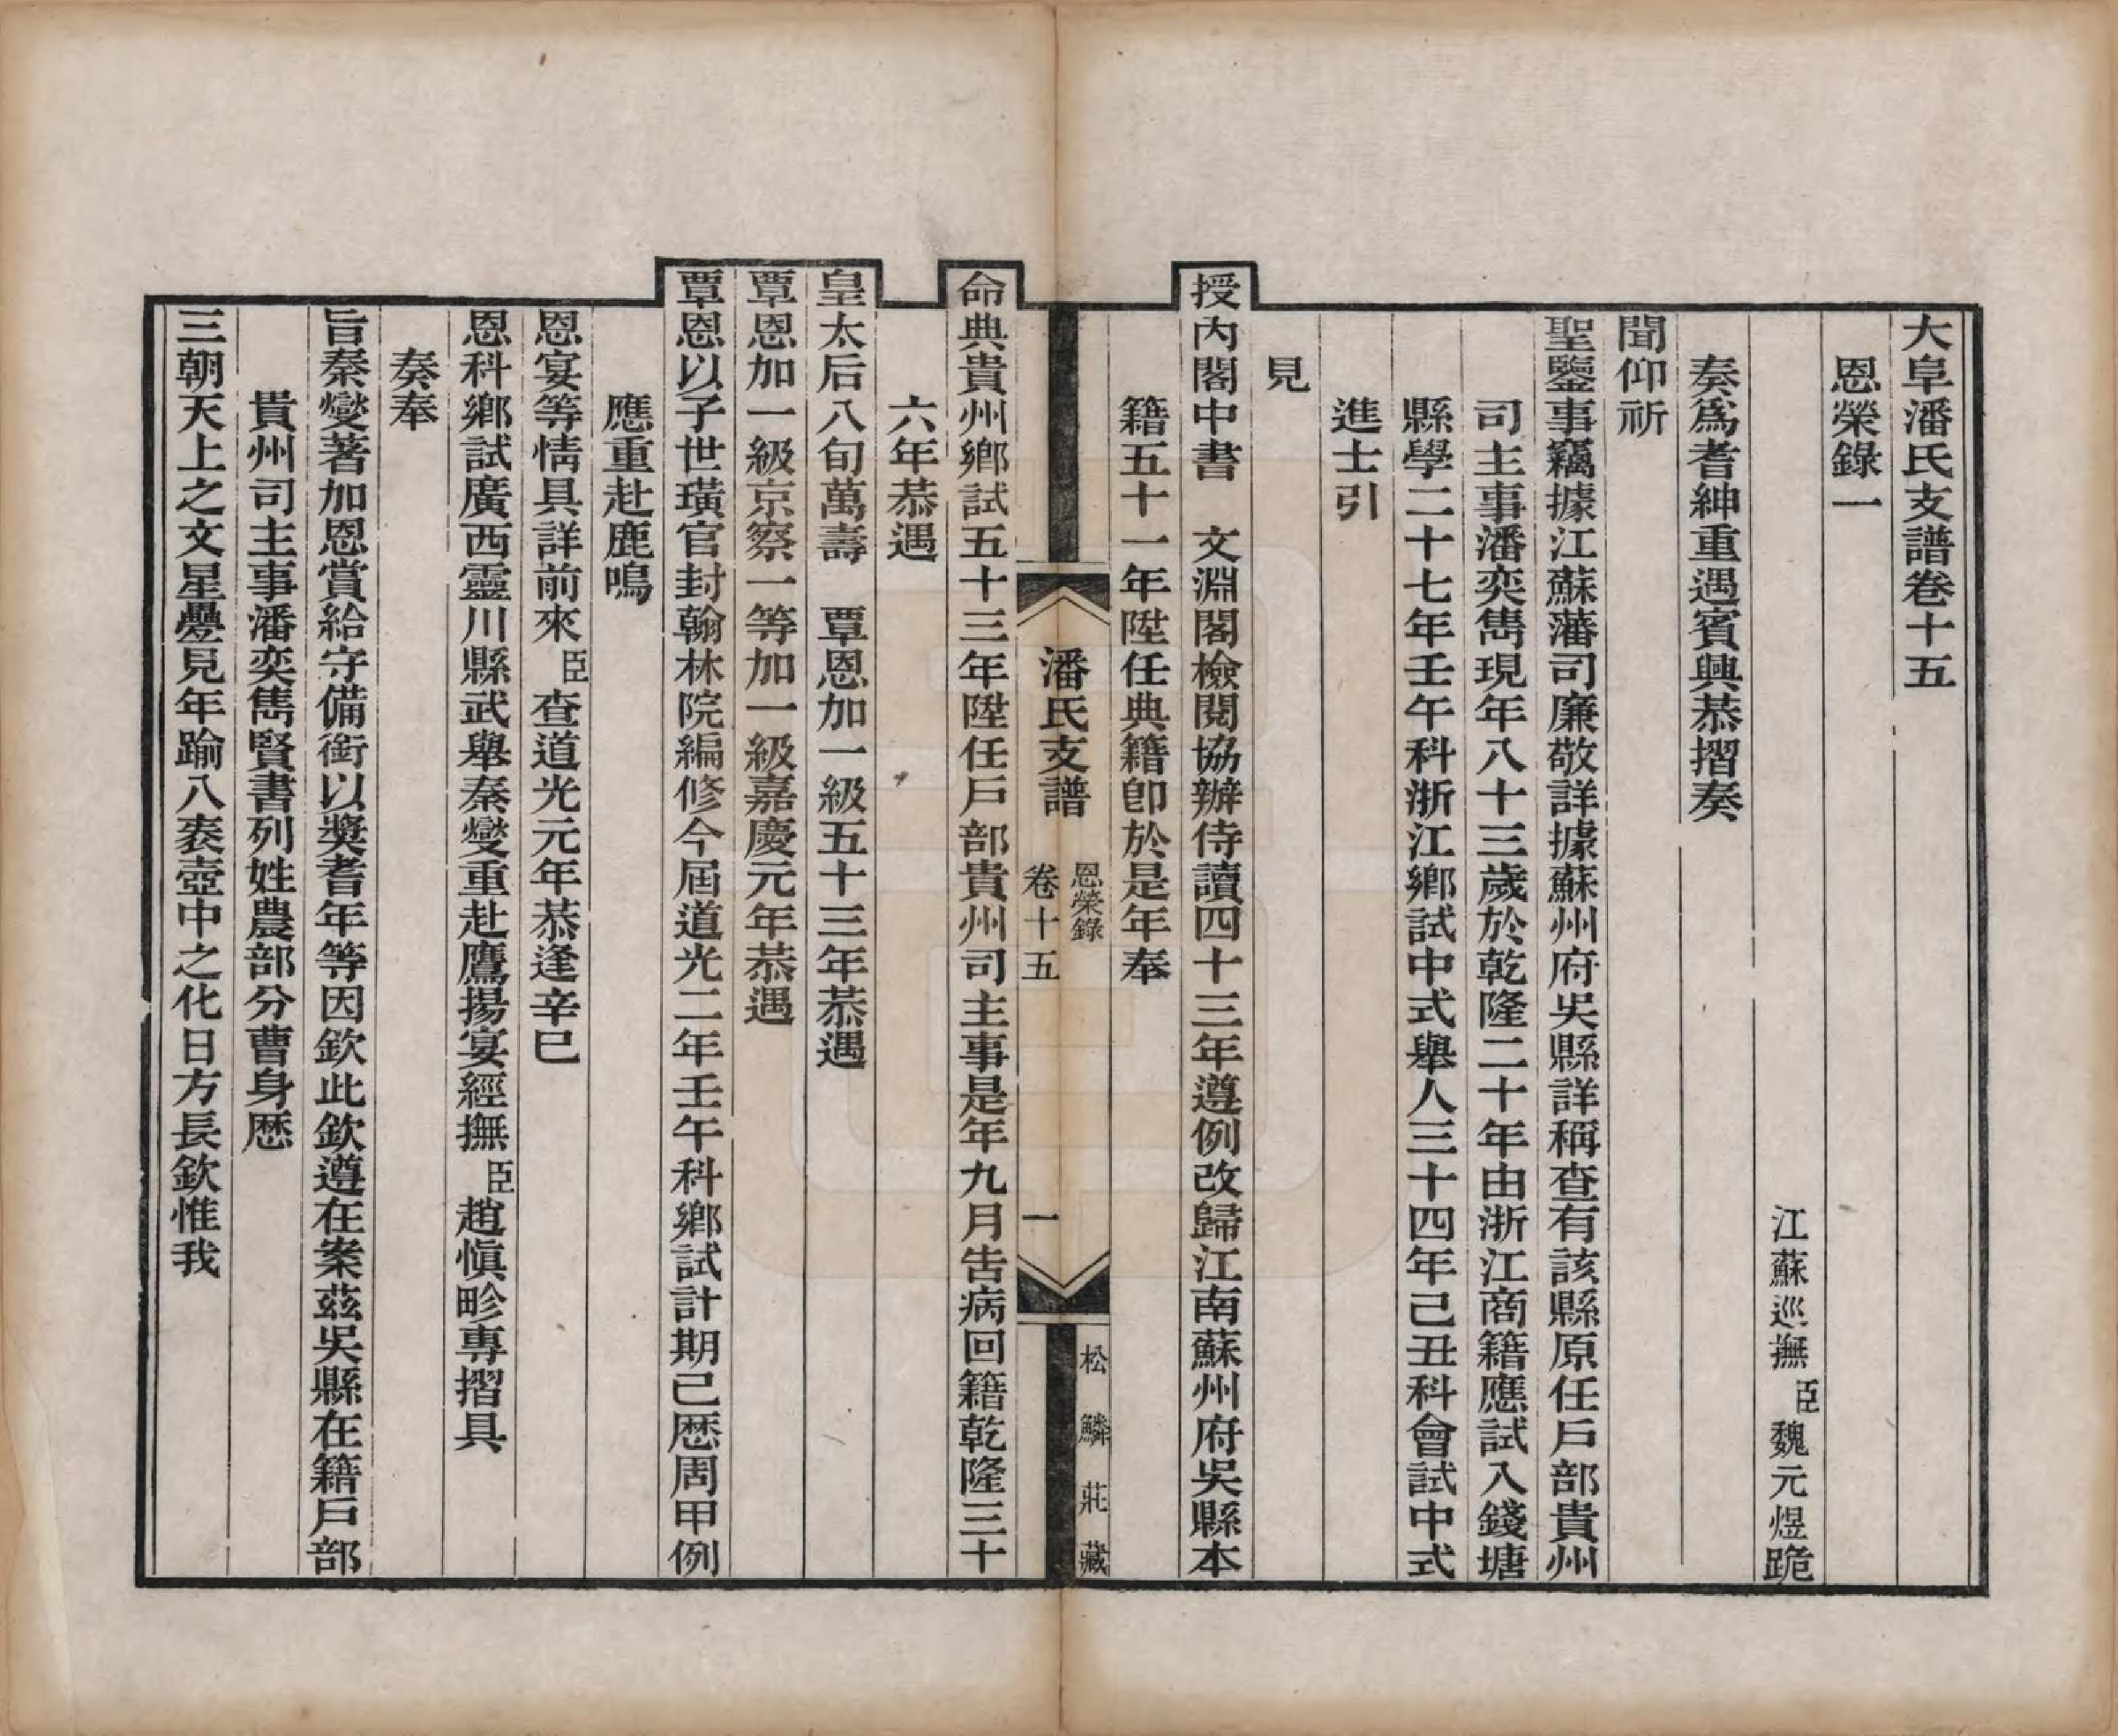 大阜潘氏支譜卷十五
恩榮錄一
江蘇巡撫臣魏元煜跪
奏爲耆紳重遇賓興恭摺奏
聞仰祈
聖鑒事竊據江蘇藩司廉敬詳據蘇州府吳縣詳稱查有該縣原任戶部貴州
司主事潘奕雋現年八十三歲於乾隆二十年由浙江商籍應試入錢塘
縣學二十七年壬午科浙江鄉試中式舉人三十四年己丑科會試中式
進士引
見
授內閣中書　文淵閣檢閱協辦侍讀四十三年遵例改歸江南蘇州府吳縣本
籍五十一年陞任典籍卽於是年奉
潘氏支譜
恩榮錄
卷十五
一
松鱗莊藏
命典貴州鄉試五十三年陞任戶部貴州司主事是年九月告病回籍乾隆三十
六年恭遇
皇太后八旬萬壽　覃恩加一級五十三年恭遇
覃恩加一級京察一等加一級嘉慶元年恭遇
覃恩以子世璜官封翰林院編修今屆道光二年壬午科鄉試計期已歷周甲例
應重赴鹿鳴
恩宴等情具詳前來臣查道光元年恭逢辛巳
恩科鄉試廣西靈川縣武舉秦燮重赴鷹揚宴經撫臣趙愼畛專摺具
奏奉
旨秦燮著加恩賞給守備銜以獎耆年等因欽此欽遵在案茲吳縣在籍戶部
貴州司主事潘奕雋賢書列姓農部分曹身歷
三朝天上之文星疊見年踰八袠壺中之化日方長欽惟我